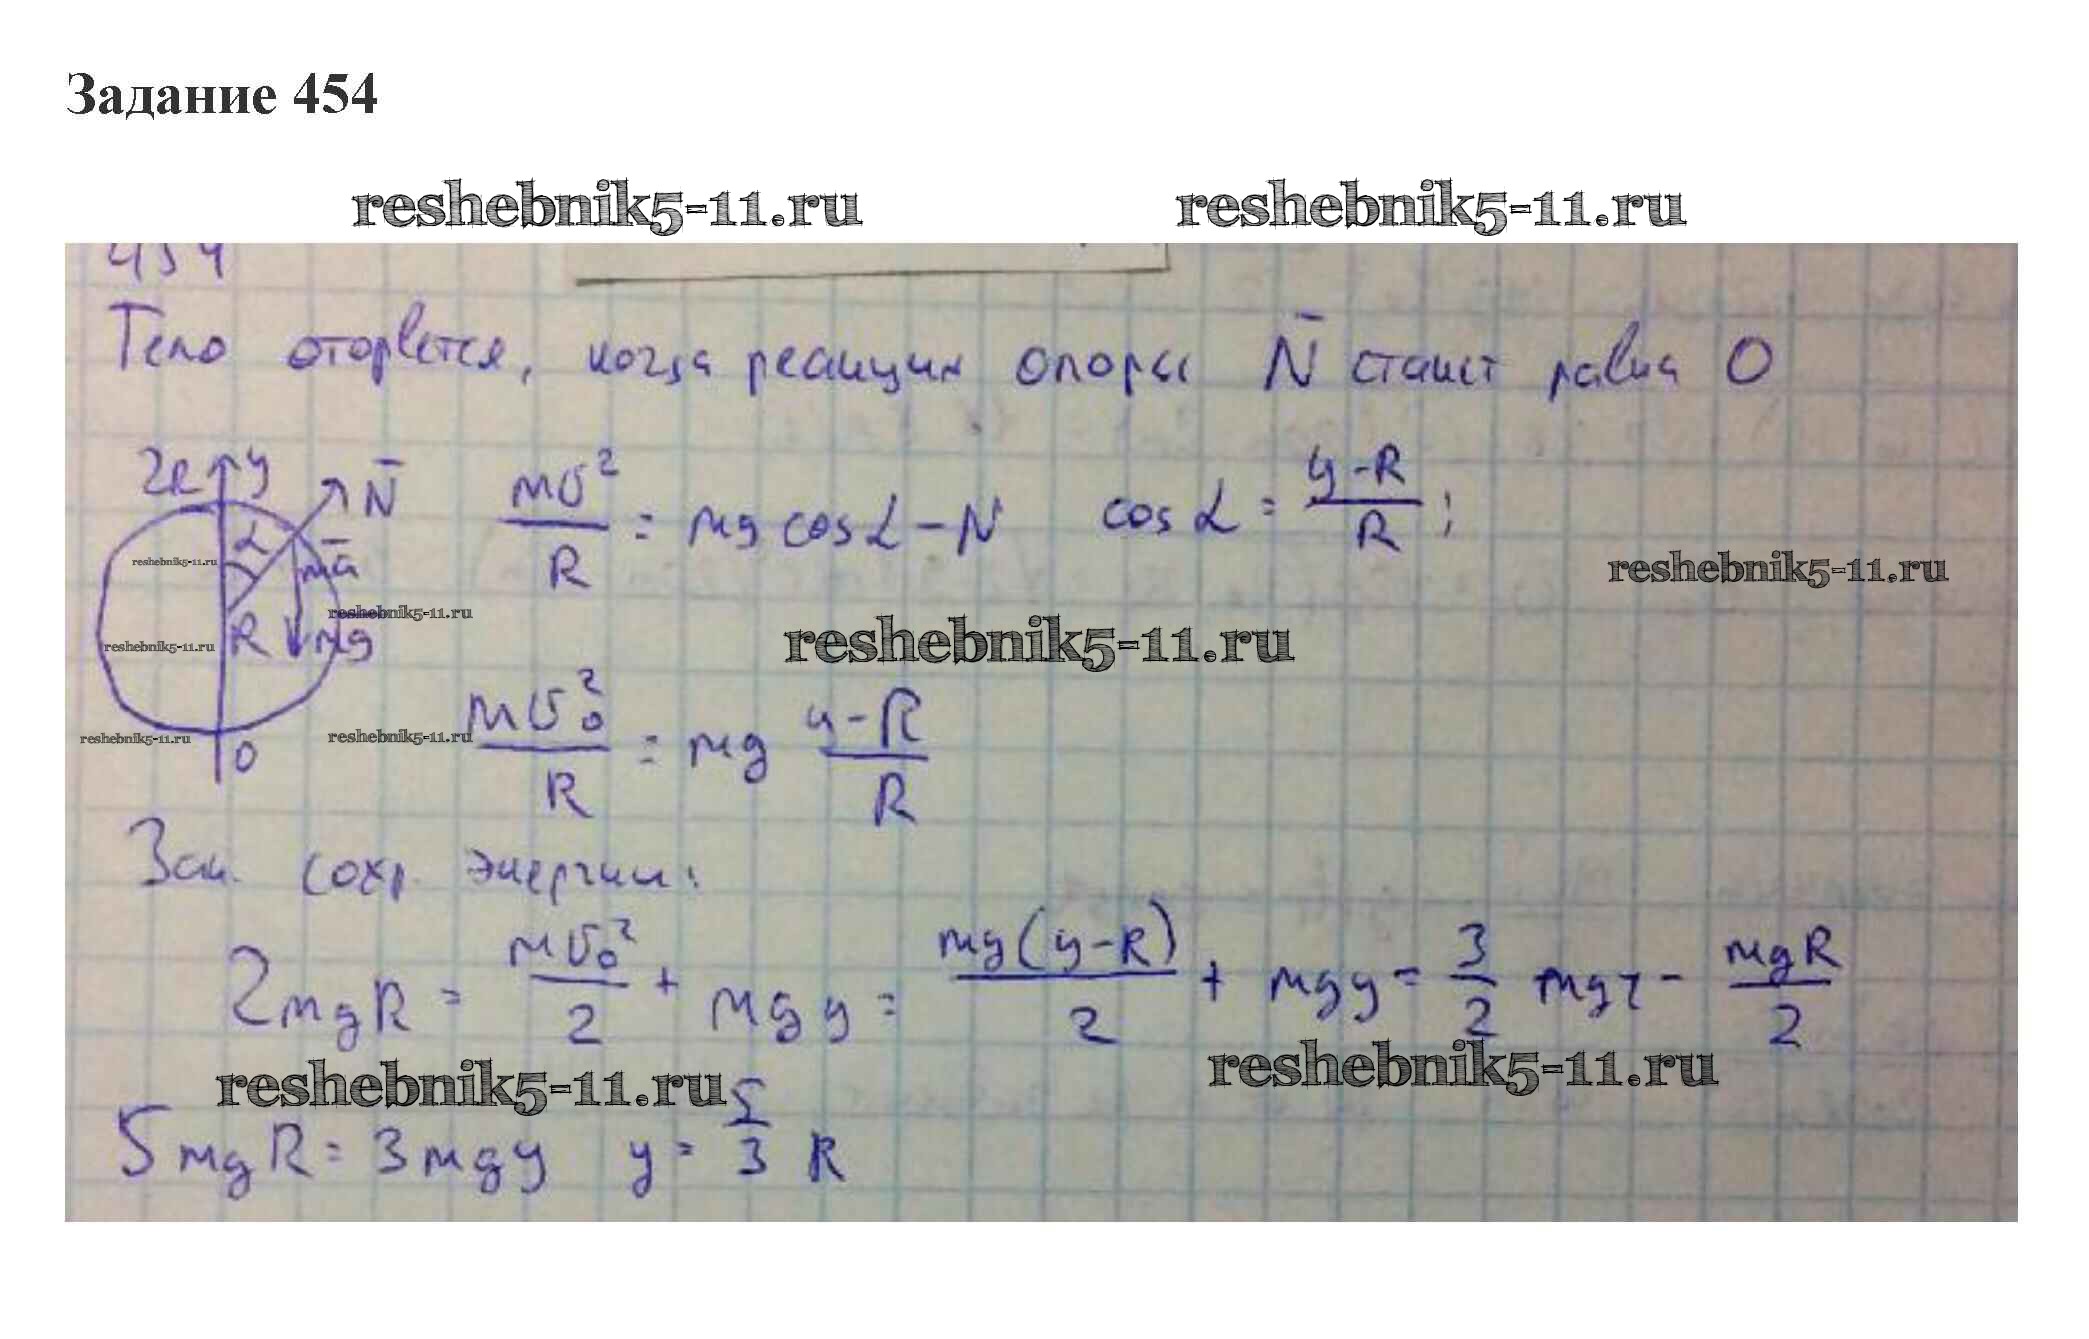 Задание 454
reshebnik5-11.ru reshebnik5-11.ru
454
Тело оторвется, когда реакция опоры N̄ станет равна 0
2R y N̄
α
mā
R mg
0
mv²/R = mg cosα - N cosα = (y-R)/R ;
reshebnik5-11.ru
reshebnik5-11.ru
reshebnik5-11.ru
reshebnik5-11.ru
reshebnik5-11.ru
reshebnik5-11.ru
reshebnik5-11.ru
mv₀²/R = mg (y-R)/R
Зак. сохр. энергии:
2mgR = mv₀²/2 + mgy = mg(y-R)/2 + mgy = 3/2 mgy - mgR/2
reshebnik5-11.ru reshebnik5-11.ru
5mgR = 3mgy y = 5/3 R